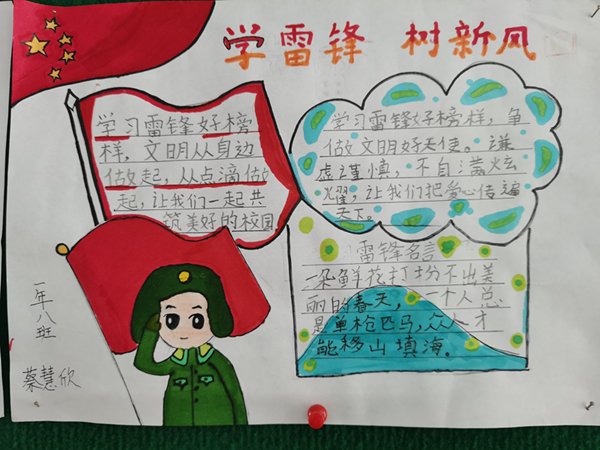 学雷锋 树新风
学习雷锋好榜
样，文明从身边
做起，从点滴做
起，让我们一起共
筑美好的校园
学习雷锋好榜样，争
做文明好天使。谦
虚谨慎，不自满炫
耀，让我们把爱心传遍
天下。
雷锋名言
一朵鲜花打扮不出美
丽的春天，一个人总
是单枪匹马，众人才
能移山填海。
一年八班
蔡慧欣